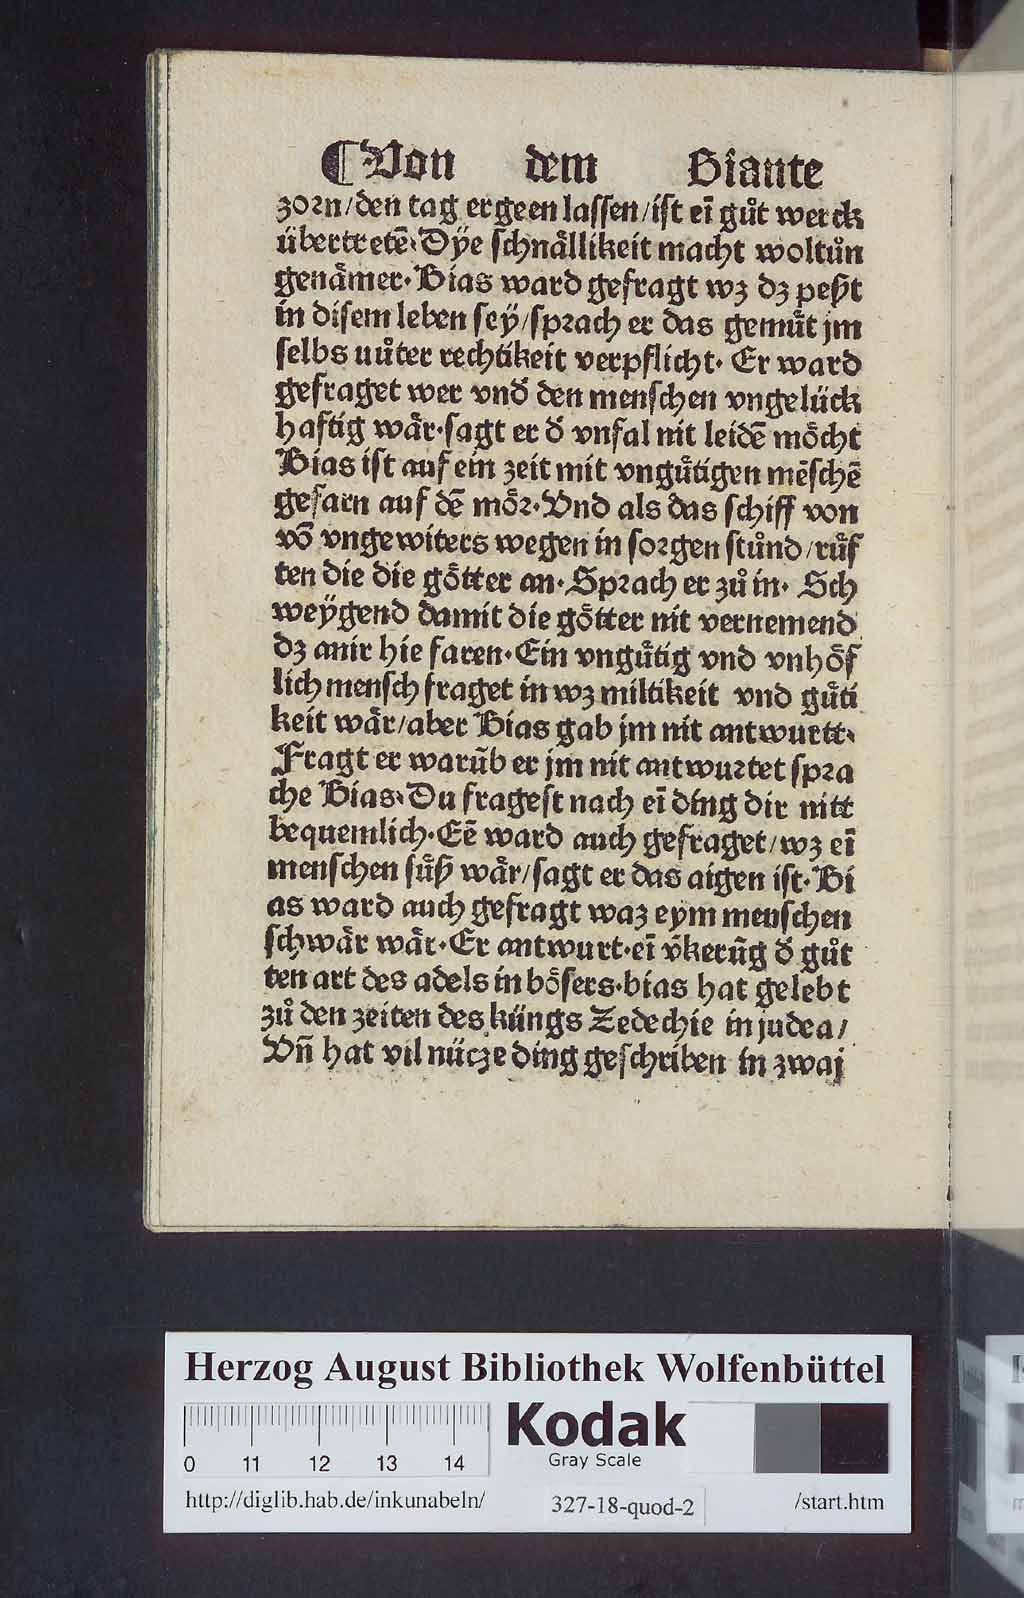 ⸿Von dem Biante
zorn/den tag ergeen lassen/ist eī gůt werck
übertretē. Dÿe schnållikeit macht woltůn
genåmer. Bias ward gefragt wz dz peßt
in disem leben seÿ/sprach er das gemuͤt jm
selbs uůter rechtikeit verpflicht. Er ward
gefraget wer vnd̕ den menschen vngelück
haftig wår. sagt er d̕ vnfal nit leidē moͤcht
Bias ist auf ein zeit mit vnguͤtigen mēschē
gefarn auf dē moͤr. Vnd als das schiff von
vō vngewiters wegen in sorgen stůnd/růf
ten die die goͤtter an. Sprach er zů in. Sch
weÿgend damit die goͤtter nit vernemend
dz anir hie faren. Ein vnguͤtig vnd vnhoͤf
lich mensch fraget in wz miltikeit vnd guͤti
keit wår/aber Bias gab jm nit antwurtt.
Fragt er warūb er jm nit antwurtet spra
che Bias. Du fragest nach eī ding dir nitt
bequemlich. Eē ward auch gefraget/wz eī
menschen suͤß wår/sagt er das aigen ist. Bi
as ward auch gefragt waz eym menschen
schwår wår. Er antwurt. eī v̄kerūg d̕ gůt
ten art des adels in boͤsers. bias hat gelebt
zů den zeiten des küngs Zedechie in judea/
Vn̄ hat vil nücze ding geschriben in zwaj
Herzog August Bibliothek Wolfenbüttel
Kodak
Gray Scale
0 11 12 13 14
http://diglib.hab.de/inkunabeln/ 327-18-quod-2 /start.htm